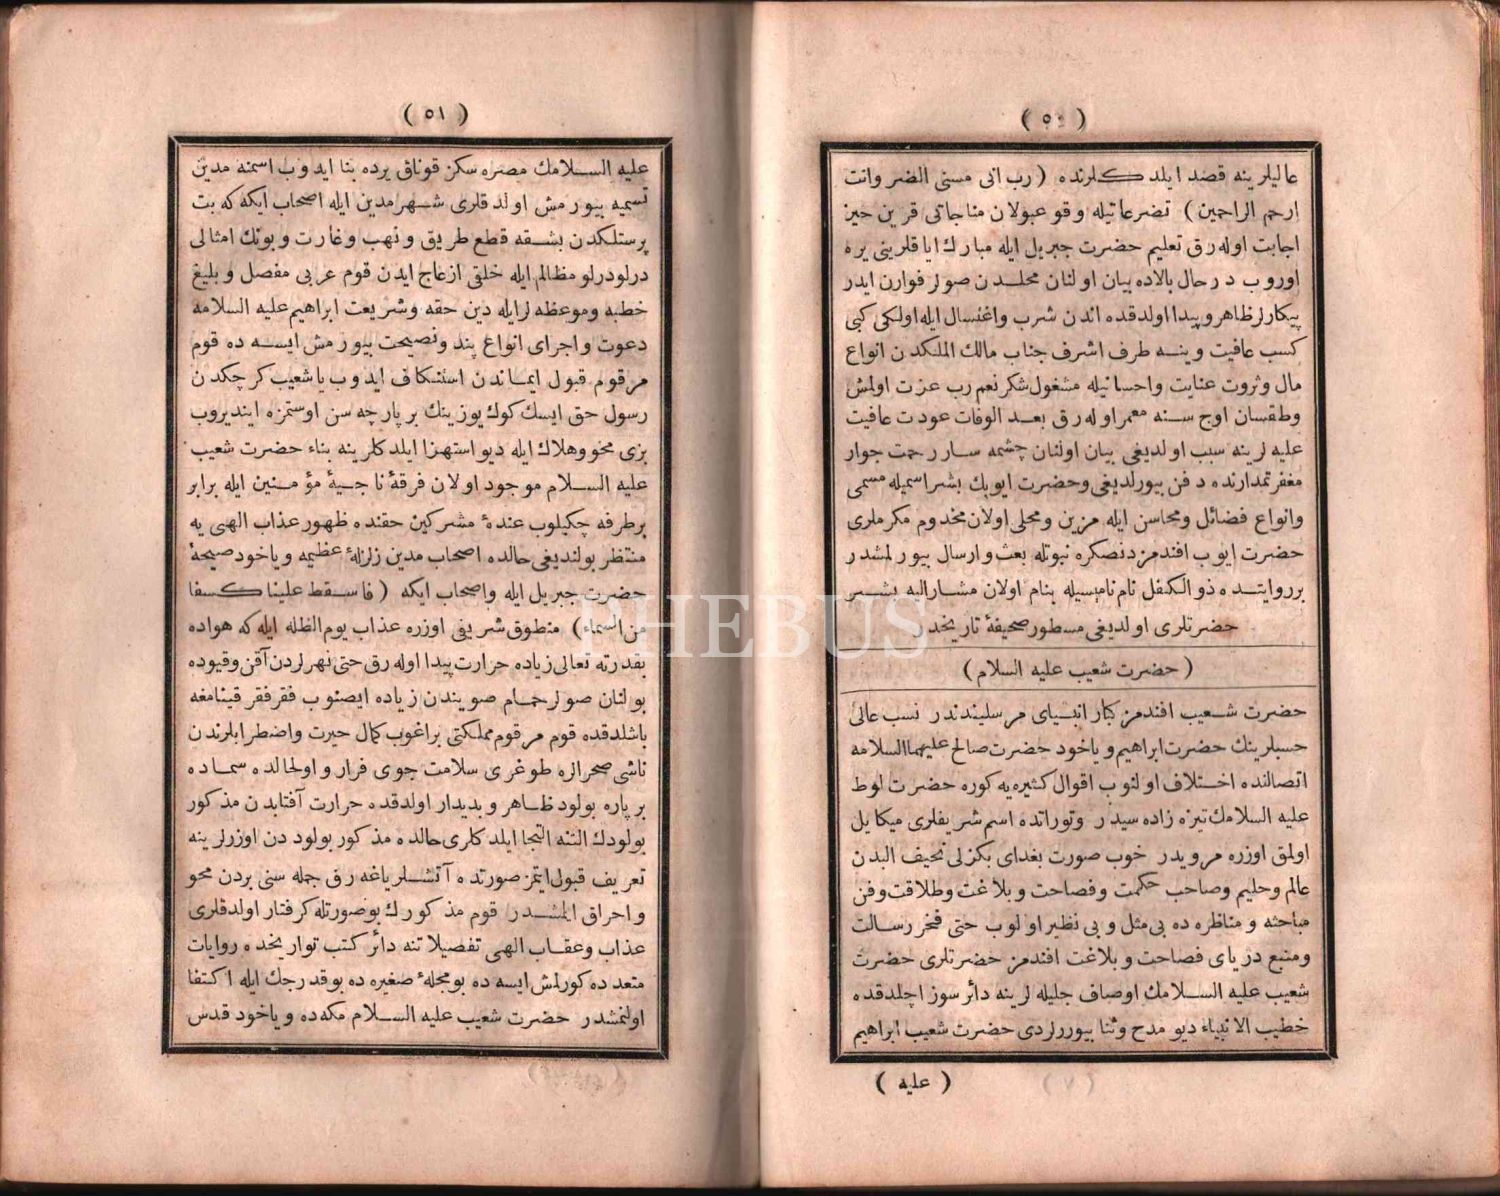 ( ٥٠ )
عاليلرينه قصد ايلدكلرنده ( رب انى مسنى الضر وانت
ارحم الراحمين ) تضرعاتيله وقوعبولان مناجاتى قرين حيز
اجابت اوله رق تعليم حضرت جبريل ايله مبارك اياقلرينى يره
اوروب درحال بالاده بيان اولنان محلدن صولر فوارن ايدر
پيكارلر ظاهر وپيدا اولدقده اندن شرب واغتسال ايله اولكى كبى
كسب عافيت وينه طرف اشرف جناب مالك الملكدن انواع
مال وثروت عنايت واحسانيله مشغول شكر نعم رب عزت اولمش
وطقسان اوج سنه معمر اوله رق بعد الوفات عودت عافيت
عليه لرينه سبب اولديغى بيان اولنان چشمه سار رحمت جوار
مغفرتمدارنده دفن بيورلديغى وحضرت ايوبك بشر اسميله مسمى
وانواع فضائل ومحاسن ايله مزين ومحلى اولان مخدوم مكرملرى
حضرت ايوب افندمزدنصكره نبوتله بعث وارسال بيورلمشدر
برروايتده ذو الكفل نام ناميسيله بنام اولان مشاراليه بشر
حضرتلرى اولديغى مسطور صحيفۀ تاريخدر
( حضرت شعيب عليه السلام )
حضرت شعيب افندمز كبار انبياى مرسليندندر نسب عالى
حسبلرينك حضرت ابراهيم وياخود حضرت صالح عليهما السلامه
اتصالنده اختلاف اولنوب اقوال كثيره يه كوره حضرت لوط
عليه السلامك تيزه زاده سيدر وتوراتده اسم شريفلرى ميكايل
اولمق اوزره مرويدر خوب صورت بغداى بكزلى نحيف البدن
عالم وحليم وصاحب حكمت وفصاحت وبلاغت وطلاقت وفن
مباحثه ومناظره ده بى مثل وبى نظير اولوب حتى فخر رسالت
ومنبع درياى فصاحت وبلاغت افندمز حضرتلرى حضرت
شعيب عليه السلامك اوصاف جليله لرينه دائر سوز اچلدقده
خطيب الانبياء ديو مدح وثنا بيوررلردى حضرت شعيب ابراهيم
( عليه )
( ٥١ )
عليه السلامك مصره سكز قوناق يرده بنا ايدوب اسمنه مدين
تسميه بيورمش اولدقلرى شهر مدين ايله اصحاب ايكه كه بت
پرستلكدن بشقه قطع طريق ونهب وغارت وبونك امثالى
درلودرلو مظالم ايله خلقى ازعاج ايدن قوم عربى مفصل وبليغ
خطبه وموعظه لرايله دين حقه وشريعت ابراهيم عليه السلامه
دعوت واجراى انواع پند ونصيحت بيورمش ايسه ده قوم
مرقوم قبول ايماندن استنكاف ايدوب ياشعيب كرچكدن
رسول حق ايسك كوك يوزينك بر پارچه سن اوستمزه اينديروب
بزى محو وهلاك ايله ديو استهزا ايلدكلرينه بناء حضرت شعيب
عليه السلام موجود اولان فرقۀ ناجيۀ مؤمنين ايله برابر
برطرفه چكيلوب عندۀ مشركين حقنده ظهور عذاب الهى يه
منتظر بولنديغى حالده اصحاب مدين زلزلۀ عظيمه وياخود صيحۀ
حضرت جبريل ايله واصحاب ايكه ( فاسقط علينا كسفا
من السماء ) منطوق شريفى اوزره عذاب يوم الظله ايله كه هواده
بقدرته تعالى زياده حرارت پيدا اوله رق حتى نهرلردن آقن وقيوده
بولنان صولر حمام صويندن زياده ايصنوب فقرفقر قينامغه
باشلدقده قوم مرقوم مملكتى براغوب كمال حيرت واضطرابلرندن
ناشى صحرالره طوغرى سلامت جوى فرار واولحالده سماده
بر پاره بولود ظاهر وبديدار اولدقده حرارت آفتابدن مذكور
بولودك التنه التجا ايلدكلرى حالده مذكور بولوددن اوزرلرينه
تعريف قبول ايتمز صورتده آتشلر ياغه رق جمله سنى بردن محو
واحراق ايلمشدر قوم مذكورك بوصورتله كرفتار اولدقلرى
عذاب وعقاب الهى تفصيلاتنه دائر كتب تواريخده روايات
متعدده كورلمش ايسه ده بومجلۀ صغيره ده بوقدرجك ايله اكتفا
اولنمشدر حضرت شعيب عليه السلام مكه ده وياخود قدس
PHEBUS